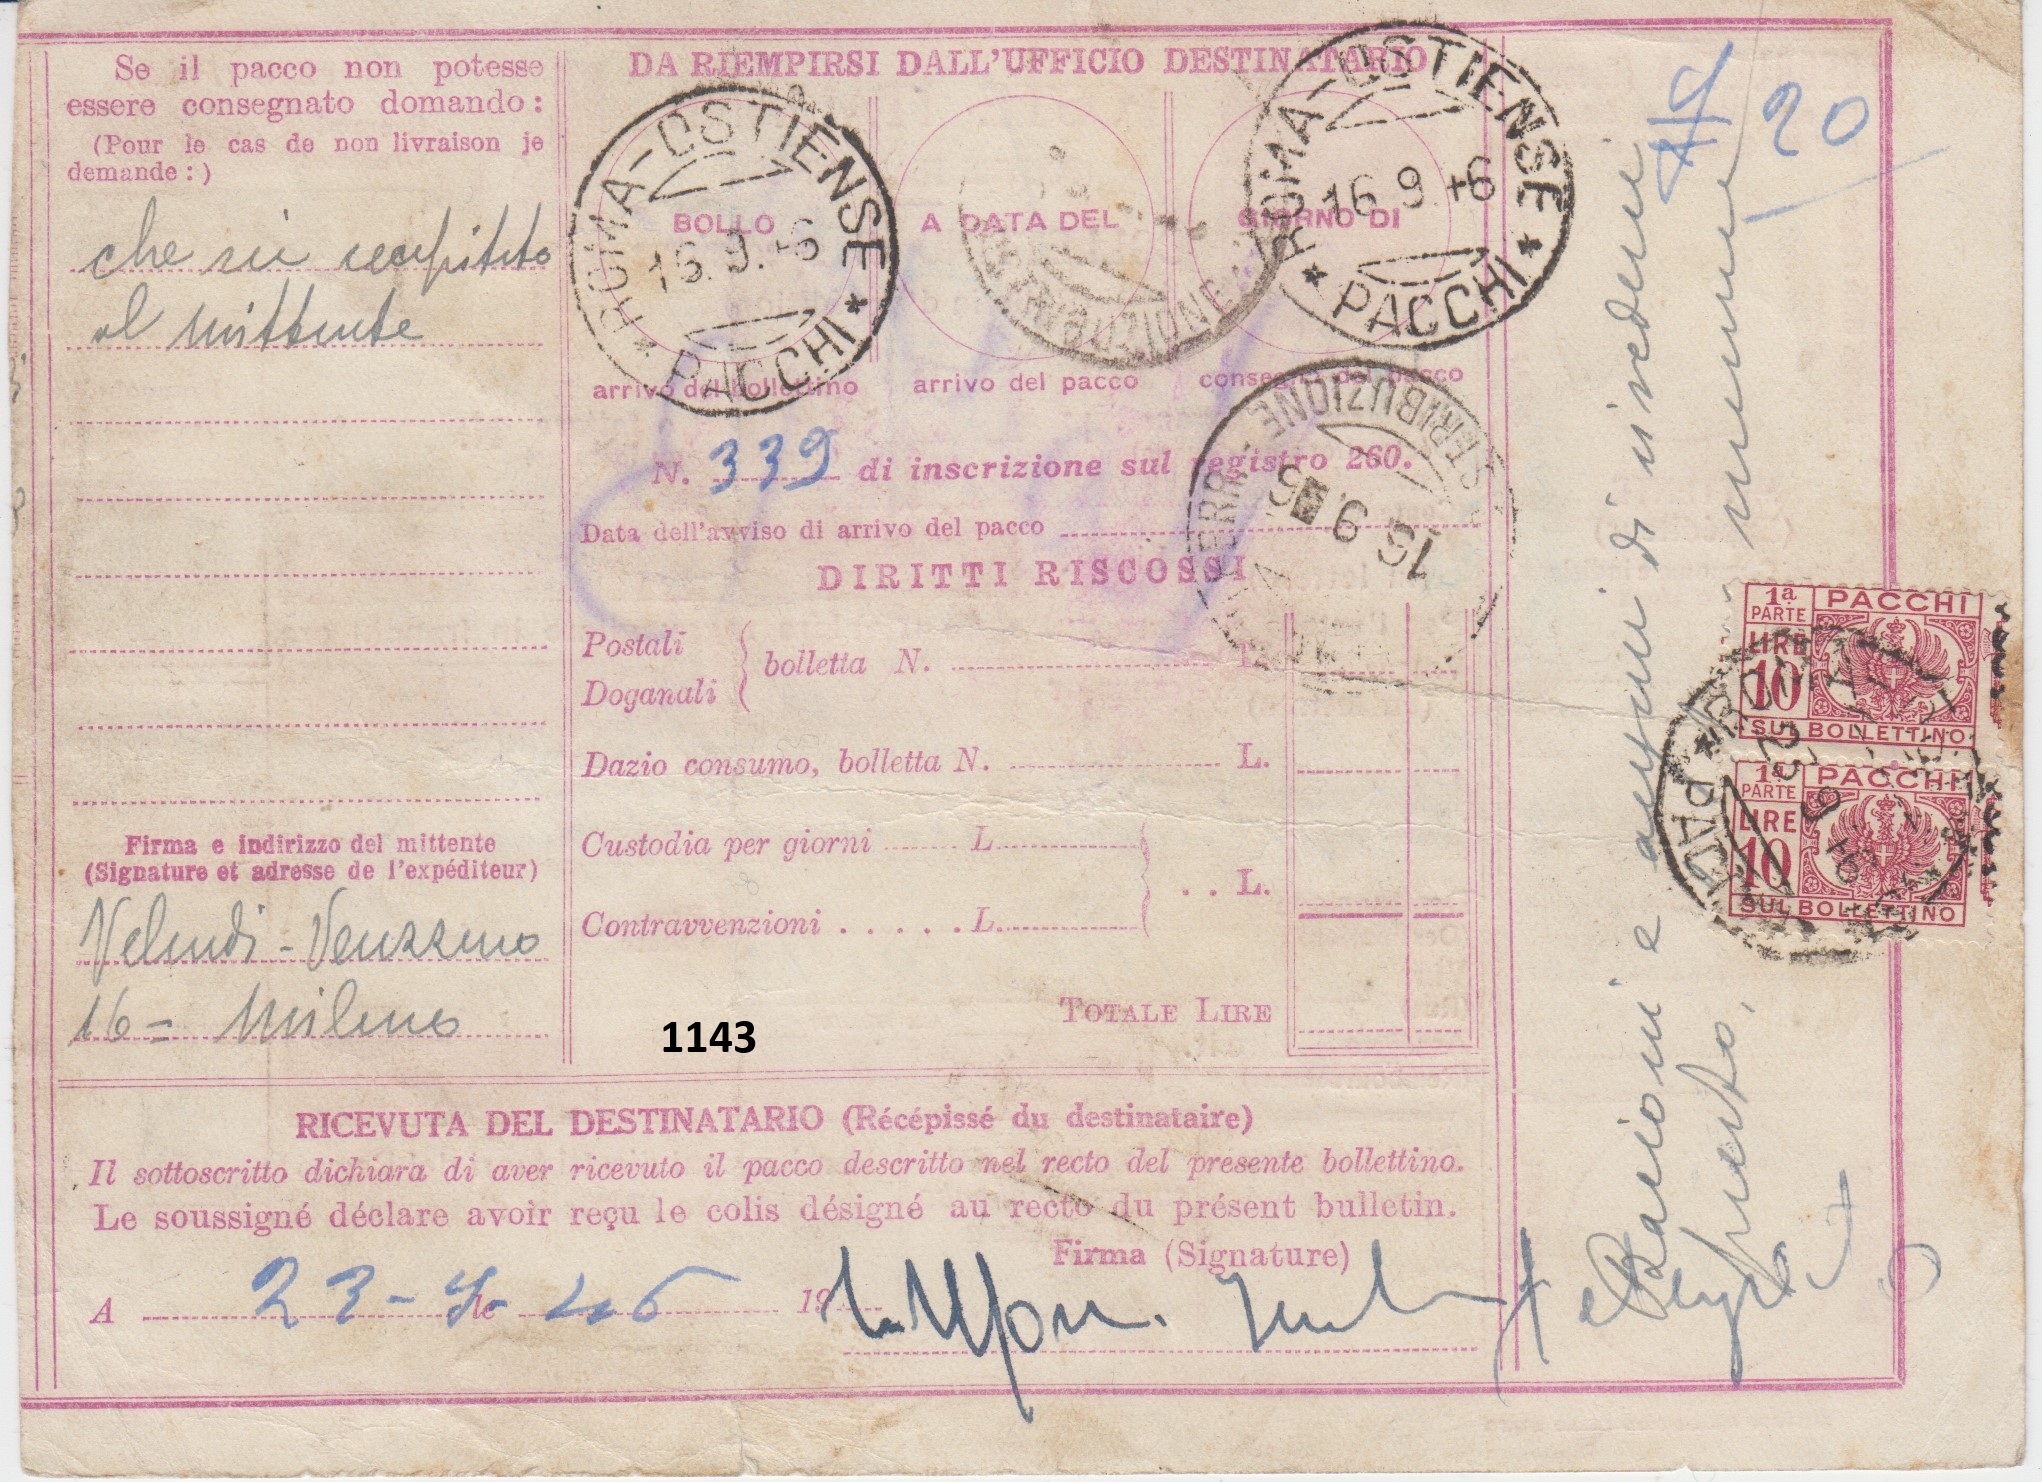 Se il pacco non potesse
essere consegnato domando:
(Pour le cas de non livraison je
demande:)
che sia recapitato
al mittente
Firma e indirizzo del mittente
(Signature et adresse de l'expéditeur)
16 - Milano
DA RIEMPIRSI DALL'UFFICIO DESTINATARIO
BOLLO
A DATA DEL
GIORNO DI
ROMA-OSTIENSE
16.9.46
* PACCHI *
DISTRIBUZIONE
ROMA-OSTIENSE
16 9 46
* PACCHI *
arrivo del bollettino
arrivo del pacco
consegna del pacco
N. 339 di inscrizione sul registro 260.
FERR. DISTRIBUZIONE
Data dell'avviso di arrivo del pacco
DIRITTI RISCOSSI
Postali
Doganali
bolletta N. L.
Dazio consumo, bolletta N. L.
Custodia per giorni L.
. . L.
Contravvenzioni . . . . . L.
TOTALE LIRE
1143
RICEVUTA DEL DESTINATARIO (Récépissé du destinataire)
Il sottoscritto dichiara di aver ricevuto il pacco descritto nel recto del presente bollettino.
Le soussigné déclare avoir reçu le colis désigné au recto du présent bulletin.
Firma (Signature)
A 23 - 9 - 46 19
20
1ª PARTE
PACCHI
LIRE
10
SUL BOLLETTINO
1ª PARTE
PACCHI
LIRE
10
SUL BOLLETTINO